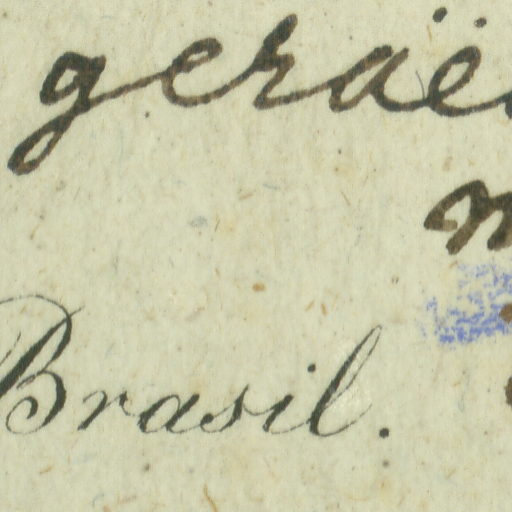 geraë
Brasil.